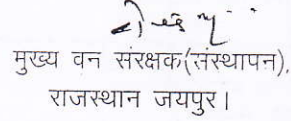 मुख्य वन संरक्षक(संस्थापन),
राजस्थान जयपुर।